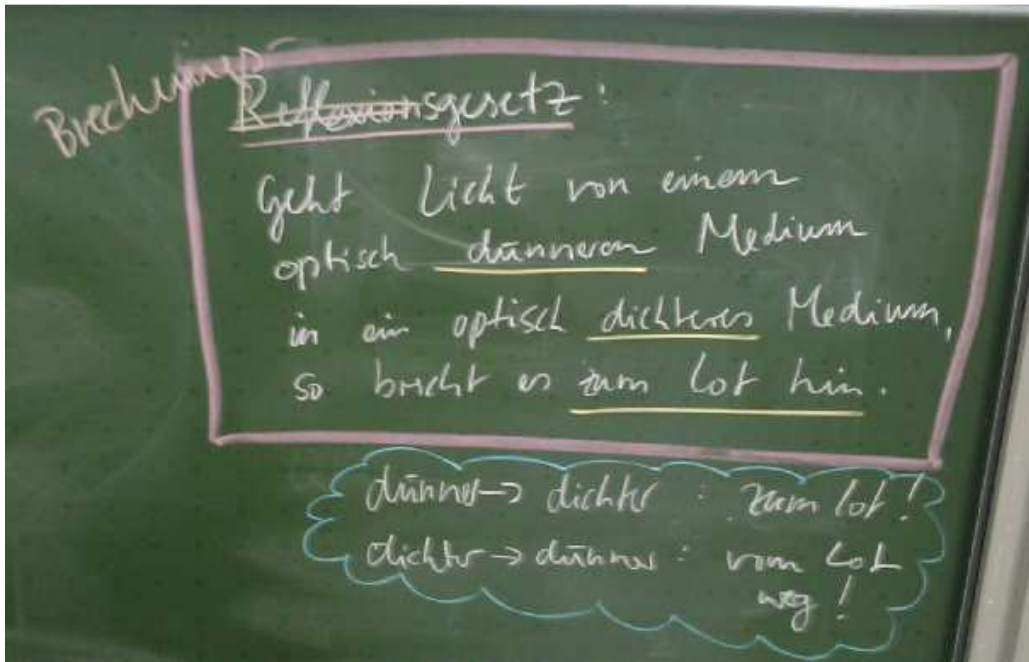 Brechungs
Reflexionsgesetz:
Geht Licht von einem
optisch dünneren Medium
in ein optisch dichteres Medium,
so bricht es zum Lot hin.
dünner → dichter : zum Lot!
dichter → dünner : vom Lot
weg!